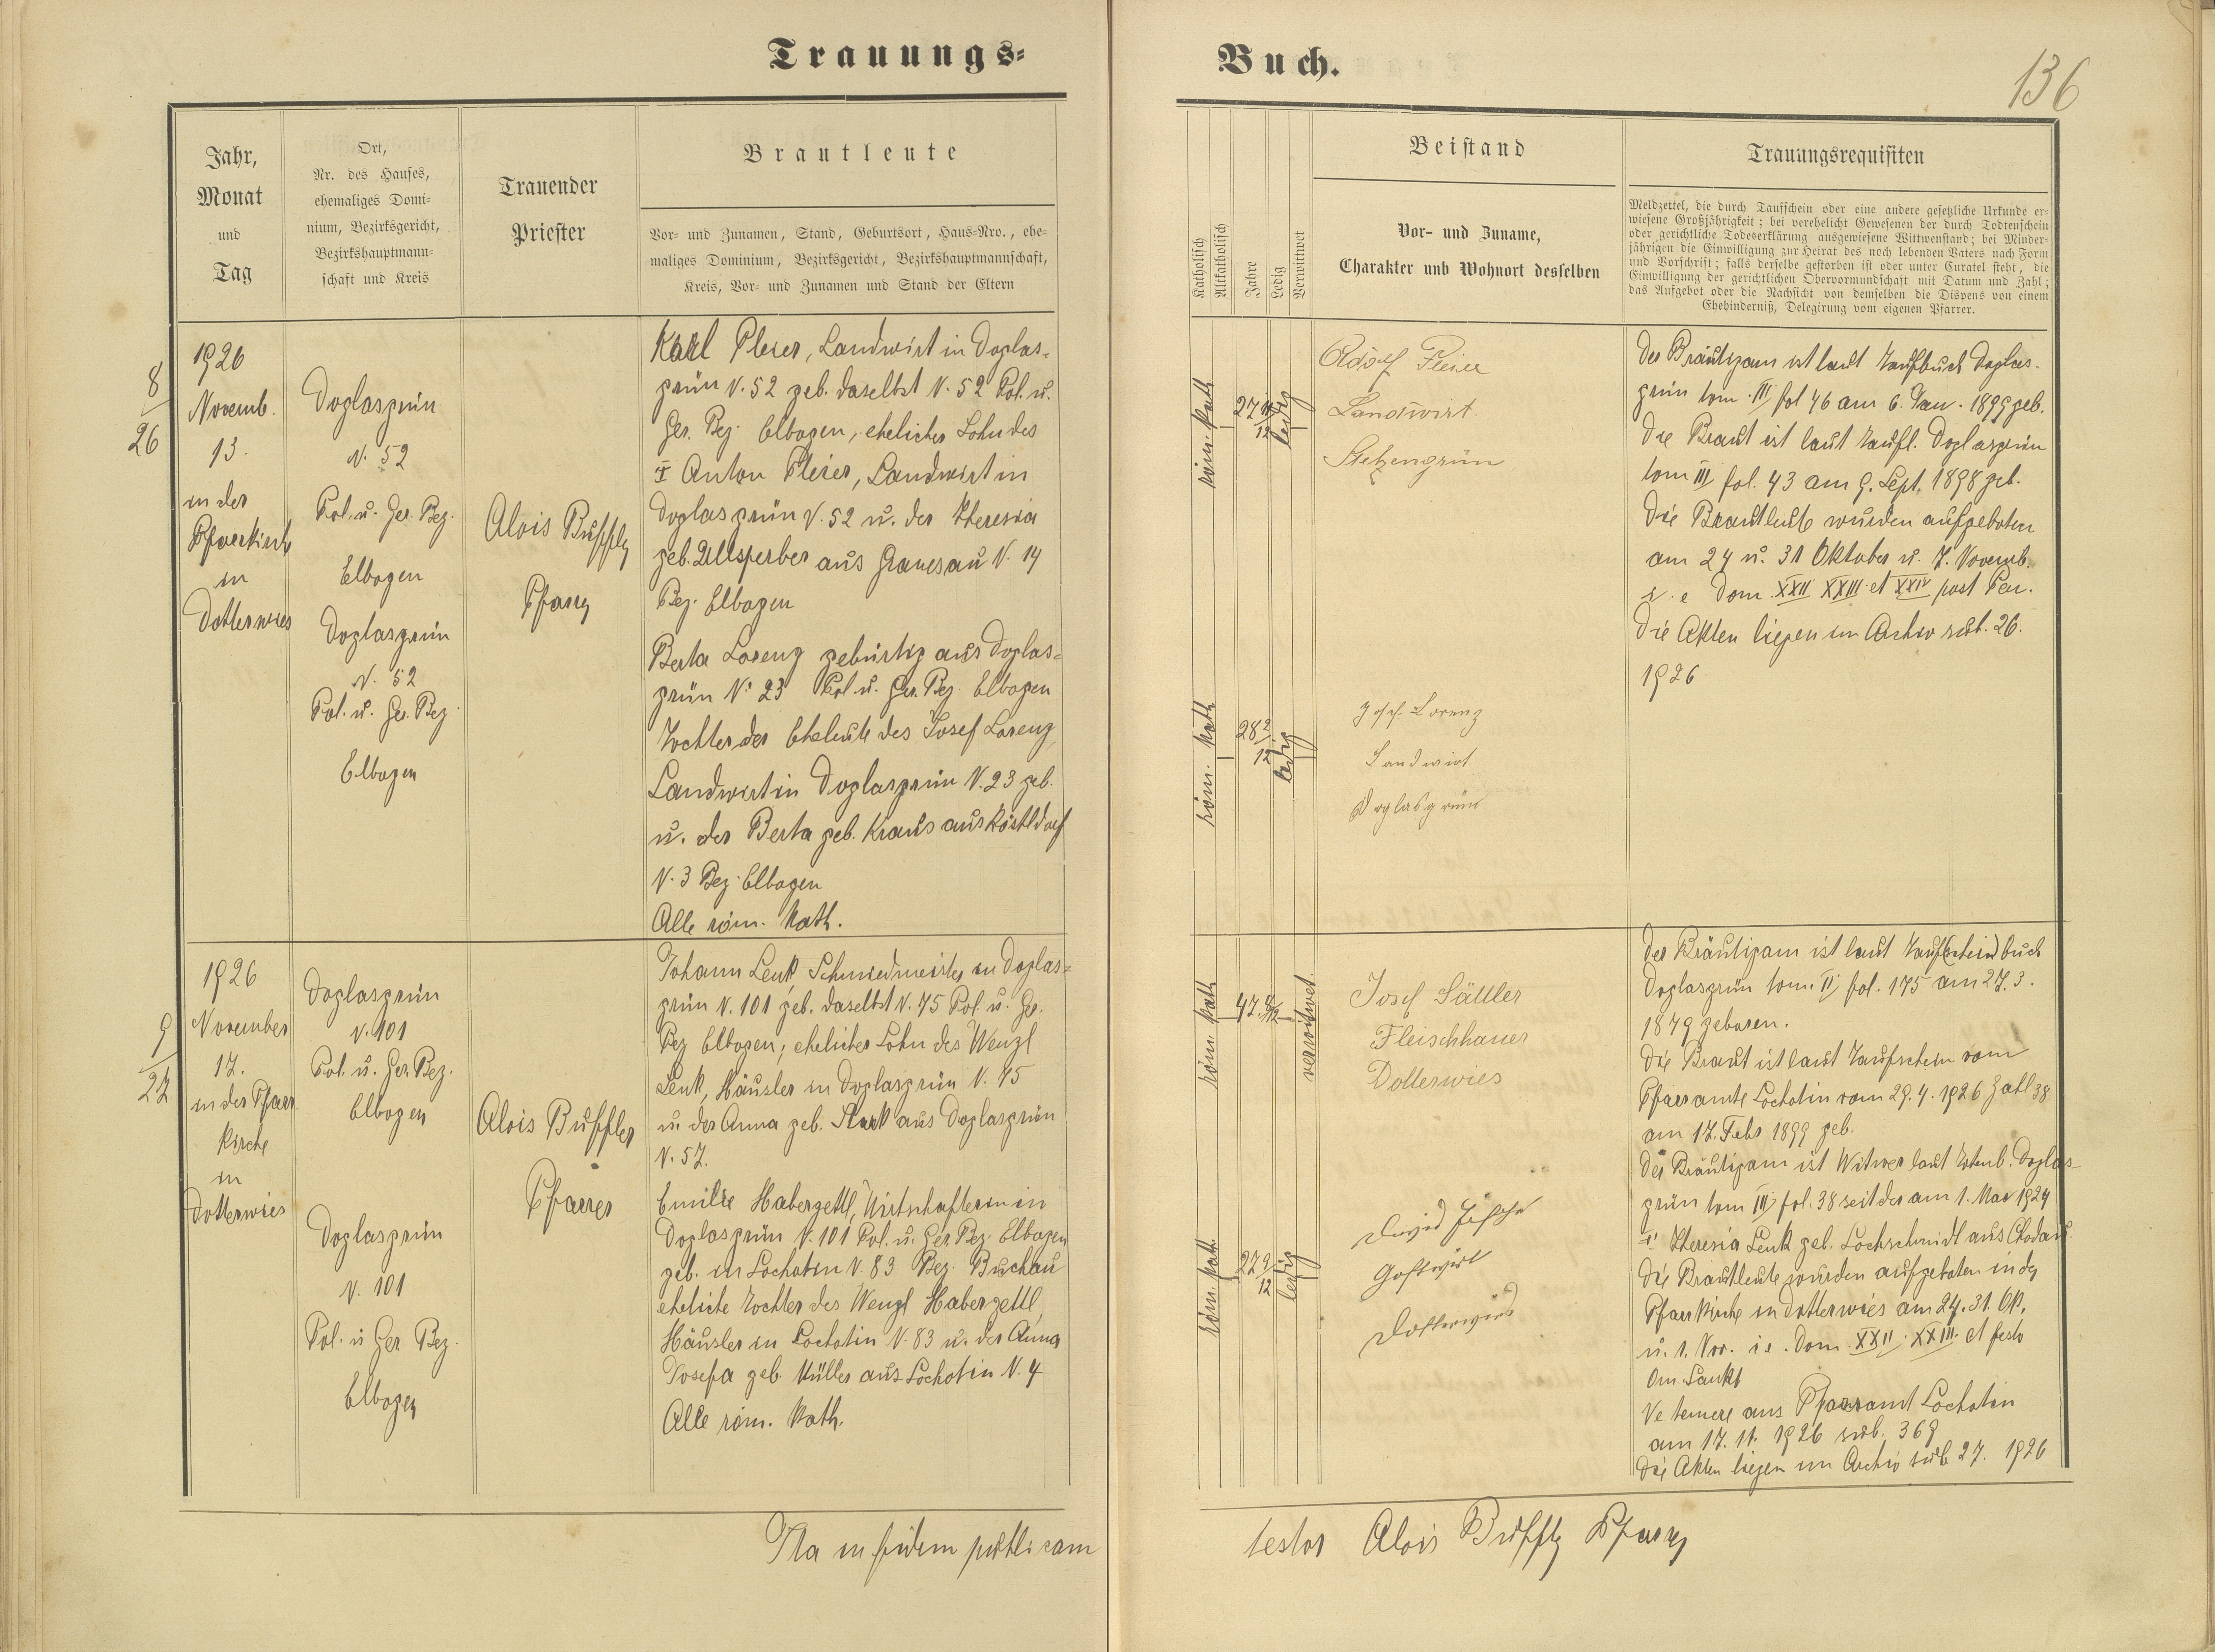 Trauungs=
Buch.
136
Jahr,
Monat
und
Tag
Ort,
Nr. des Hauses,
ehemaliges Domi-
nium, Bezirksgericht,
Bezirkshauptmann-
schaft und Kreis
Trauender
Priester
Brautleute
Vor- und Zunamen, Stand, Geburtsort, Haus-Nro., ehe-
maliges Dominium, Bezirksgericht, Bezirkshauptmannschaft,
Kreis, Vor- und Zunamen und Stand der Eltern
Katholisch
Altkatholisch
Jahre
Ledig
Verwitwet
Beistand
Vor- und Zuname,
Charakter und Wohnort desselben
Trauungsrequisiten
Meldzettel, die durch Taufschein oder eine andere gesetzliche Urkunde er-
wiesene Großjährigkeit; bei verehelicht Gewesenen der durch Todtenschein
oder gerichtliche Todeserklärung ausgewiesene Wittwenstand; bei Minder-
jährigen die Einwilligung zur Heirat des noch lebenden Vaters nach Form
und Vorschrift; falls derselbe gestorben ist oder unter Curatel steht, die
Einwilligung der gerichtlichen Obervormundschaft mit Datum und Zahl;
das Aufgebot oder die Nachsicht von demselben die Dispens von einem
Ehehinderniß, Delegirung vom eigenen Pfarrer.
8
26
1926
Novemb.
13.
in der
Pfarrkirche
in
Dotterwies
Doglasgrün
N. 52
Pol. u. Ger. Bez.
Elbogen
Doglasgrün
N. 52
Pol. u. Ger. Bez.
Elbogen
Alois Buffler
Pfarrer
Karl Pleier, Landwirt in Doglas-
grün N. 52 geb. daselbst N. 52 Pol. u.
Ger. Bez. Elbogen, ehelicher Sohn des
Anton Pleier, Landwirt in
Doglasgrün N. 52 u. der Theresia
geb. Ullsperber aus Granesau N. 14
Bez. Elbogen
Berta Lorenz gebürtig aus Doglas-
grün N. 23 Pol. u. Ger. Bez. Elbogen
Tochter der Eheleute des Josef Lorenz,
Landwirt in Doglasgrün N. 23 geb.
u. der Berta geb. Kraus aus Köstldorf
N. 3 Bez. Elbogen
Alle röm. kath.
röm. kath
27 10/12
ledig
röm. kath
28 2/12
ledig
Adolf Pleier
Landwirt.
Stelzengrün
Josef Lorenz
Landwirt
Doglasgrün
Der Bräutigam ist laut Taufbuch Doglas-
grün tom. III fol 46 am 6. Jan. 1899 geb.
Die Braut ist laut Taufb. Doglasgrün
tom III fol. 43 am 9. Sept. 1898 geb.
Die Brautleute wurden aufgeboten
am 24 u. 31 Oktober u. 7. Novemb.
i. e Dom. XXII XXIII et XXIV post Pen.
Die Akten liegen im Archiv sub. 26.
1926
9
27
1926
November
17.
in der Pfarr
kirche
in
Dotterwies
Doglasgrün
N. 101
Pol. u. Ger. Bez.
Elbogen
Doglasgrün
N. 101
Pol. u Ger Bez.
Elbogen
Alois Buffler
Pfarrer
Johann Lenk, Schmiedmeister in Doglas-
grün N. 101 geb. daselbst N. 75 Pol. u. Ger.
Bez Elbogen, ehelicher Sohn des Wenzl
Lenk, Häusler in Doglasgrün N. 75
u. der Anna geb. Stark aus Doglasgrün
N. 57.
Emilie Haberzettl, Wirtschafterin in
Doglasgrün N. 101 Pol. u. Ger. Bez. Elbogen
geb. in Lochotin N. 83 Bez. Buchau
eheliche Tochter des Wenzl Haberzettl,
Häusler in Lochotin N. 83 u. der Anna
Josefa geb. Müller aus Lochotin N. 4
Alle röm. kath.
röm. kath
47 8/12
verwitwet.
röm. kath.
27 9/12
ledig
Josef Sättler
Fleischhauer
Dotterwies
David Fische
Gastwirt
Dotterwies
Der Bräutigam ist laut Tauf(schein)buch
Doglasgrün tom. II fol. 175 am 27. 3.
1879 geboren.
Die Braut ist laut Taufschein vom
Pfarramte Lochotin vom 29. 4. 1926 Zahl 38
am 17. Febr 1899 geb.
Der Bräutigam ist Witwer laut Totenb. Doglas-
grün tom III fol. 38 seit der am 1. Mai 1924
Theresia Lenk geb. Lochschmidt aus Chodau
Die Brautleute wurden aufgeboten in der
Pfarrkirche in Dotterwies am 24. 31. Ok.
u. 1. Nov. i e. Dom. XXII XXIII. et festo
Om. Sankt
Ne temere aus Pfarramt Lochotin
am 17. 11. 1926 sub. 369
Die Akten liegen im Archiv sub 27. 1926
Ita in fidem publicam
testor Alois Buffler Pfarrer